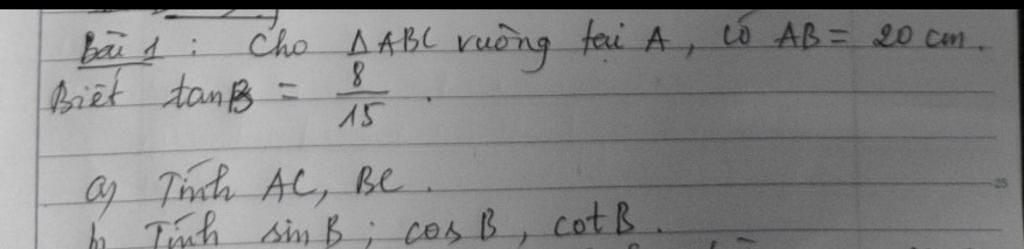 Bài 1 : Cho ΔABC vuông tại A, có AB = 20 cm.
Biết tanB = 8/15 .
a) Tính AC, BC.
b) Tính sin B ; cos B , cot B.
25